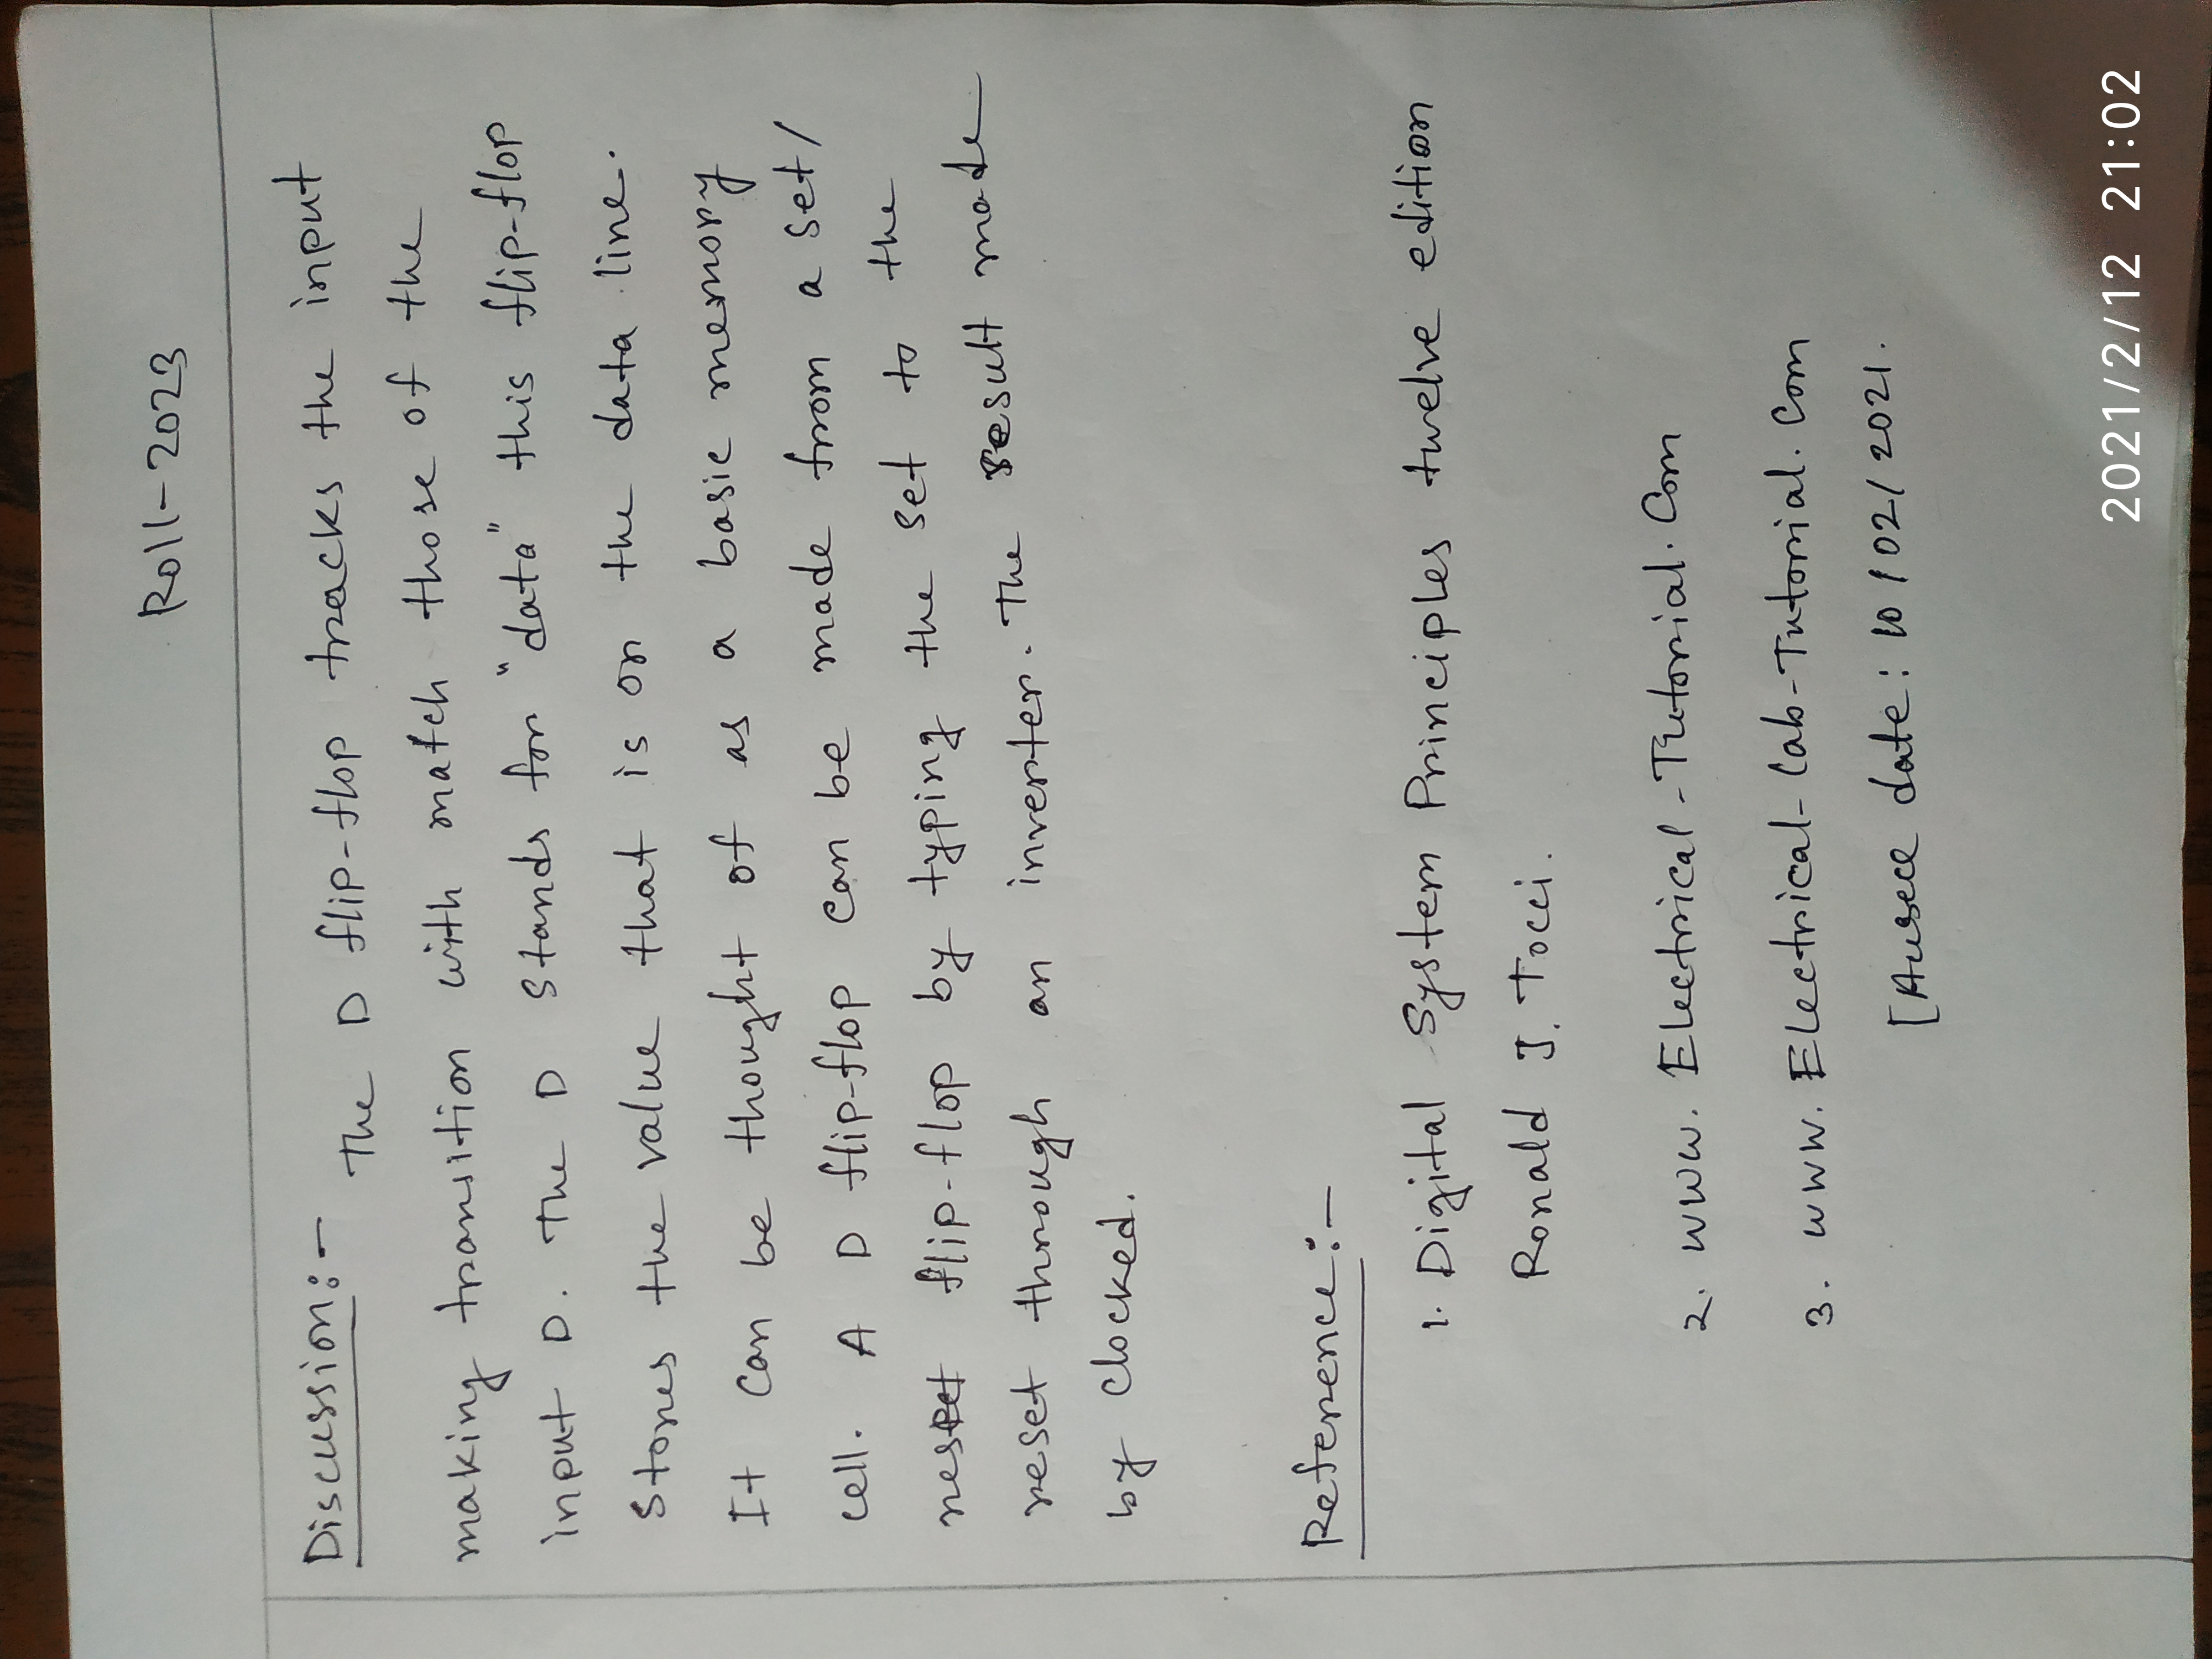 Roll-2023
Discussion:-
The D flip-flop tracks the input
making transition with match those of the
input D. The D stands for "data" this flip-flop
stores the value that is on the data line.
It can be thought of as a basic memory
cell. A D flip-flop can be made from a set/
reset flip-flop by typing the set to the
reset through an inverter. The result made
by clocked.
Reference:-
1. Digital System Principles twelve edition
Ronald J. Tocci.
2. www. Electrical-Tutorial. Com
3. www. Electrical-Lab-Tutorial. Com
[ date: 10/02/2021.
2021/2/12 21:02